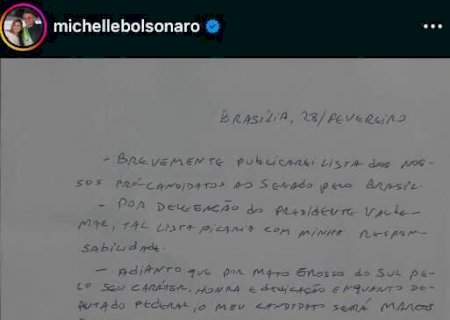 michellebolsonaro
BRASÍLIA, 28/FEVEREIRO
- BREVEMENTE PUBLICAREI LISTA DOS NOS-
SOS PRÉ-CANDIDATOS AO SENADO PELO BRASIL.
- POR DELEGAÇÃO DO PRESIDENTE VALDE-
MAR, TAL LISTA FICARIA COM MINHA RESPON-
SABILIDADE.
- ADIANTO QUE POR MATO GROSSO DO SUL PE-
LO SEU CARÁTER, HONRA E DEDICAÇÃO ENQUANTO DE-
PUTADO FEDERAL, O MEU CANDIDATO SERÁ MARCOS